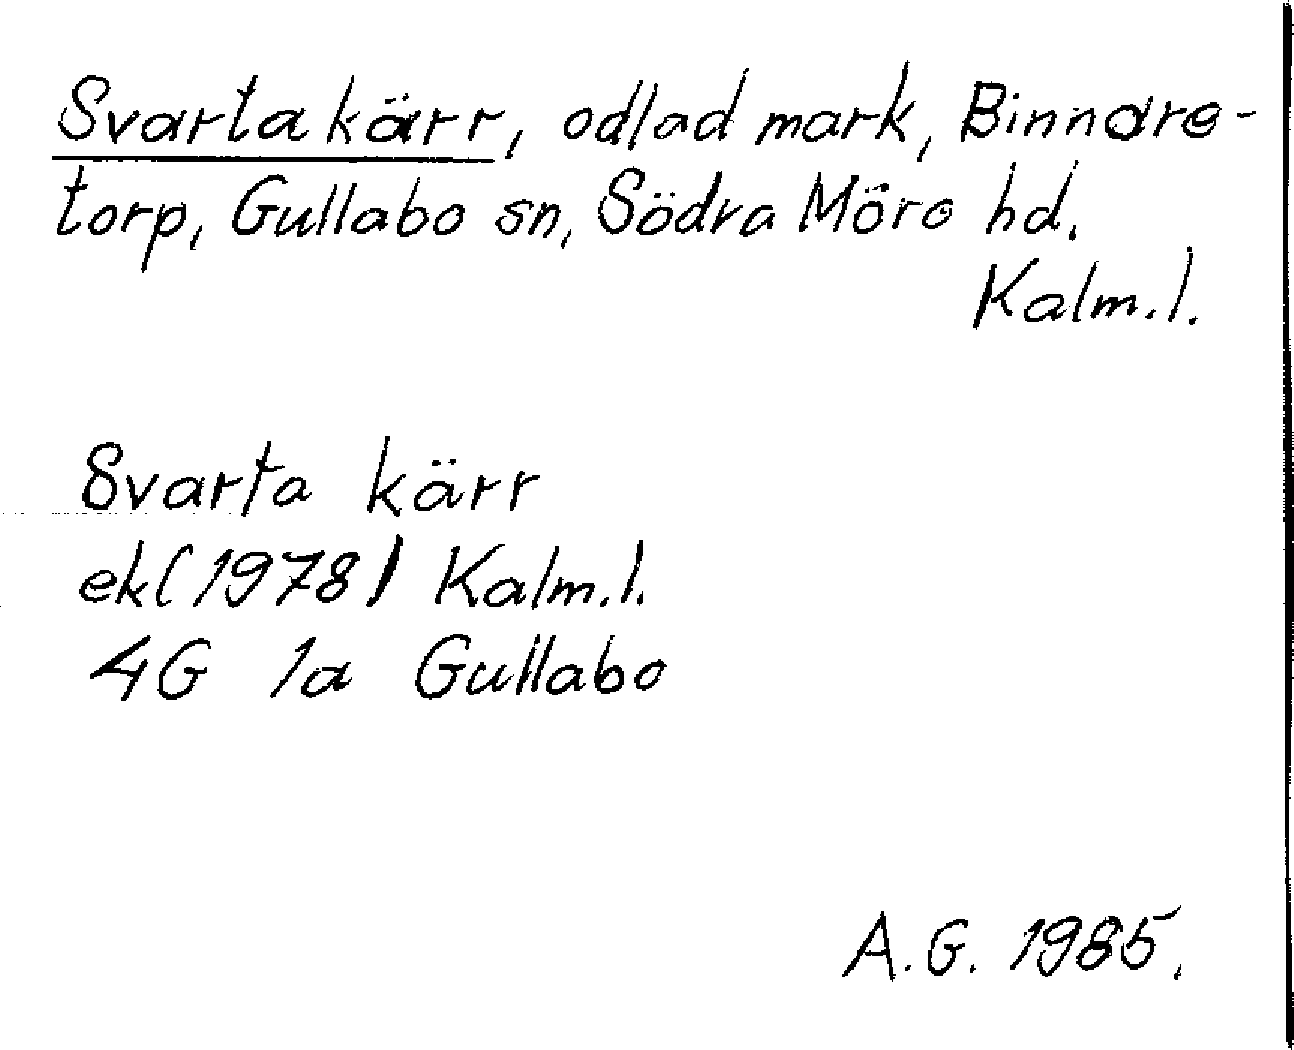 Svarta kärr, odlad mark, Binnare-
torp, Gullabo sn, Södra Möre hd.
Kalm.l.
Svarta kärr
ek(1978) Kalm.l.
4G 1a Gullabo
A.G. 1985.